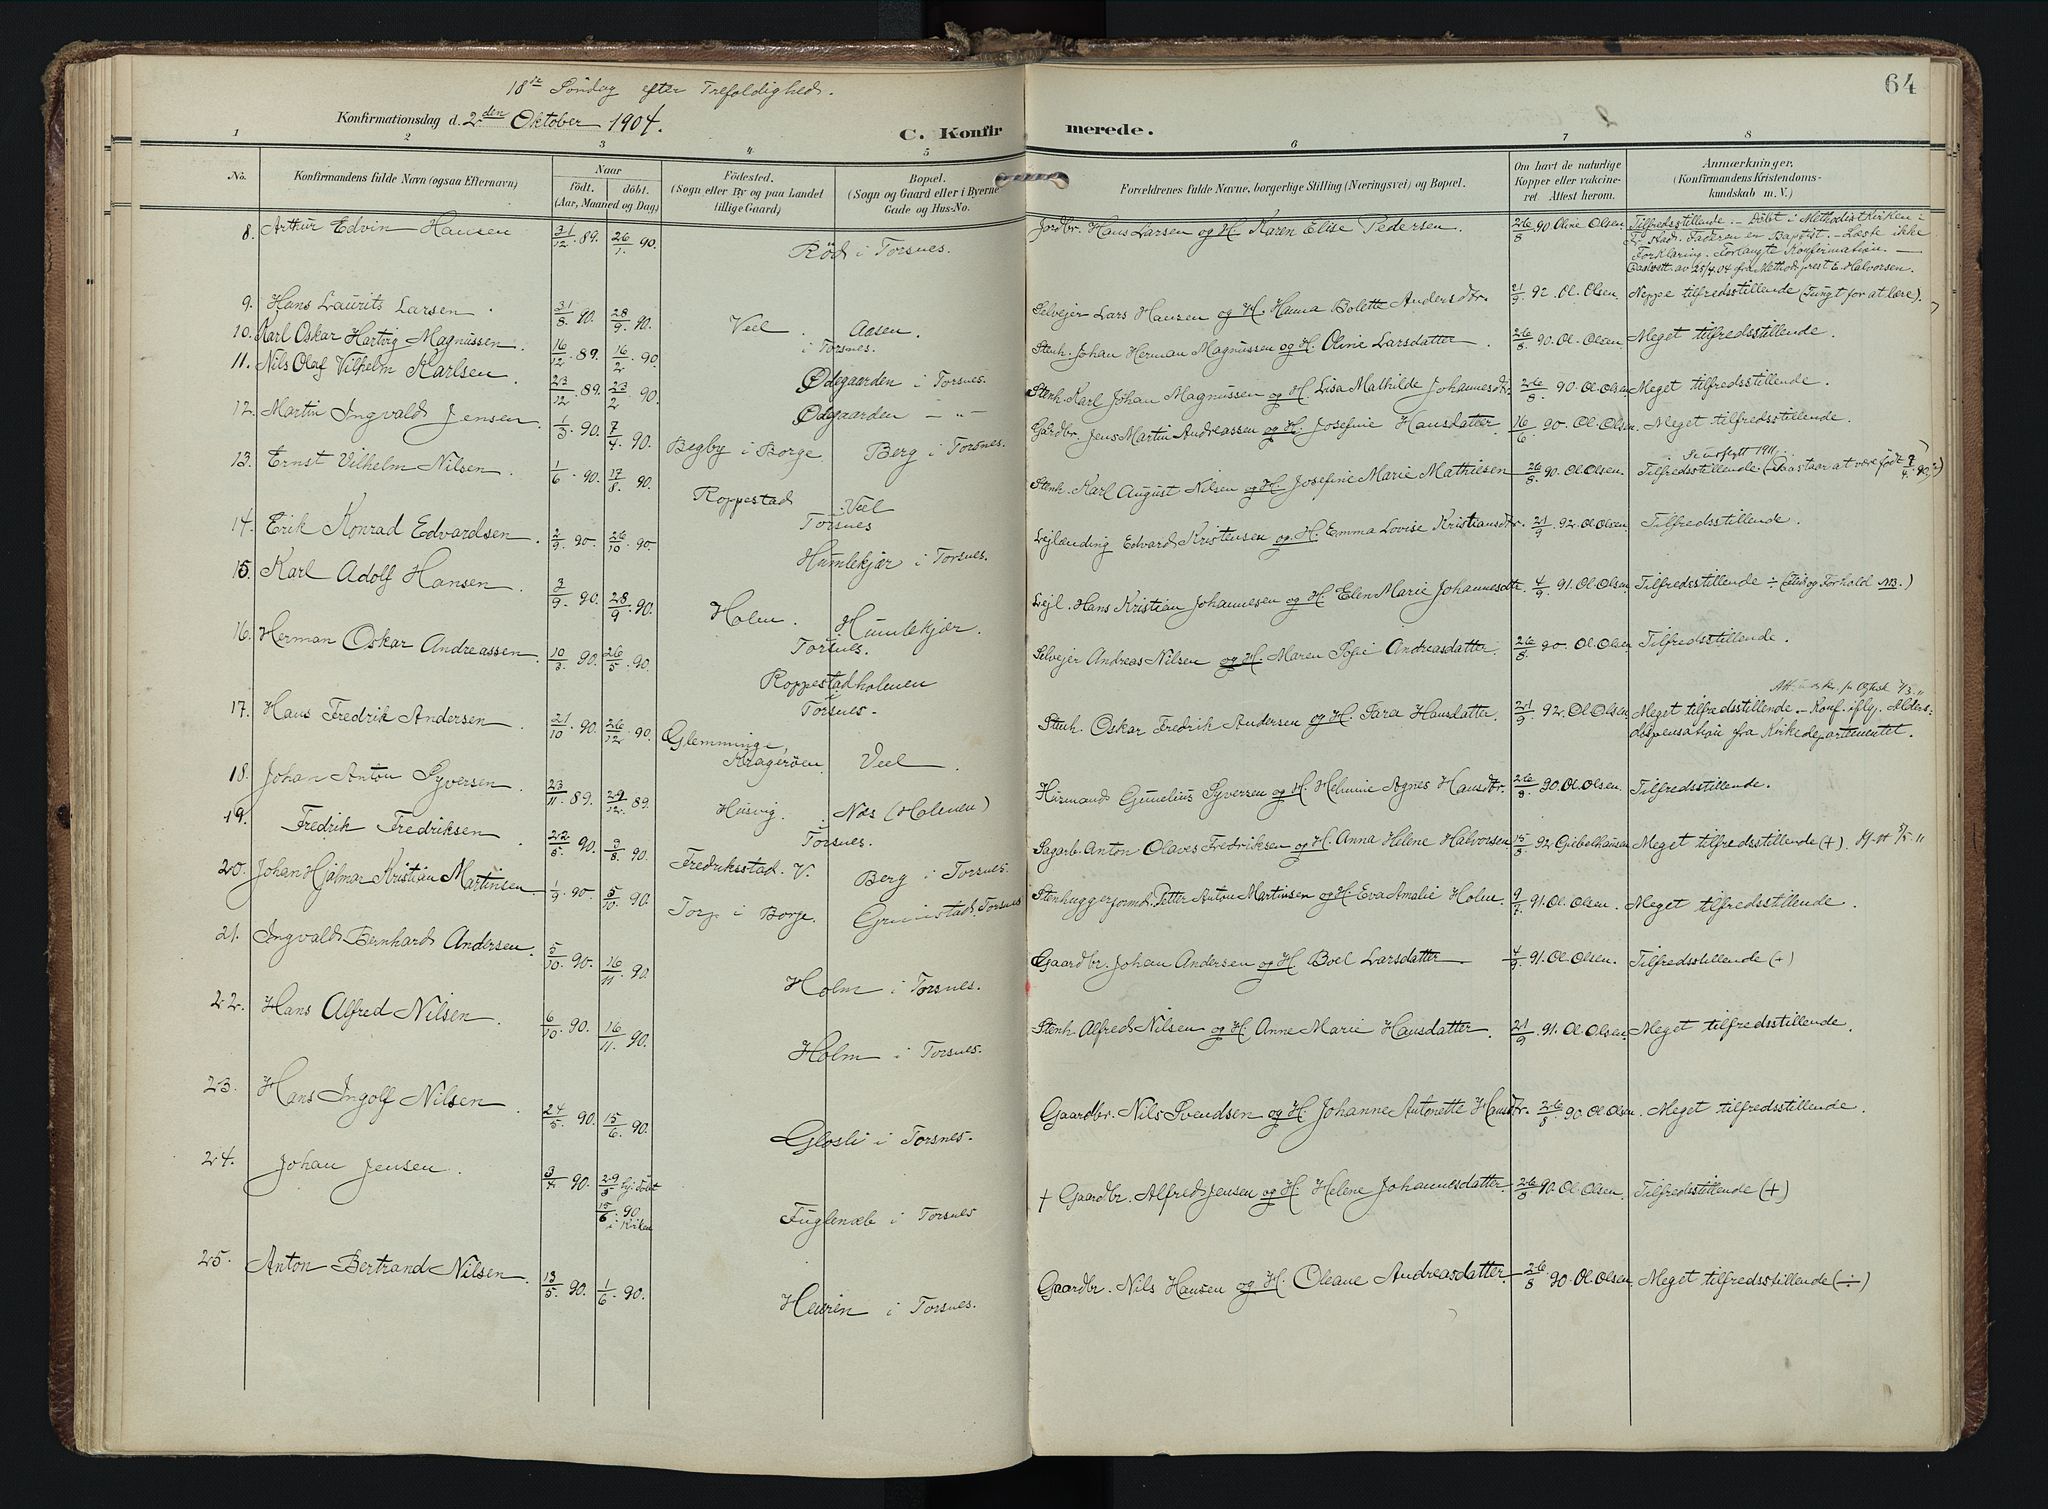 64
18de Søndag efter Trefoldighed.
Konfirmationsdag d. 2den Oktober 1904.
C. Konfirmerede.
1 2 3 4 5 6 7 8
No.
Konfirmandens fulde Navn (ogsaa Efternavn)
Naar
født. døbt.
(Aar, Maaned og Dag)
Fødested.
(Sogn eller By og paa Landet
tillige Gaard)
Bopæl.
(Sogn og Gaard eller i Byerne
Gade og Hus-No.
Forældrenes fulde Navne, borgerlige Stilling (Næringsvei) og Bopæl.
Om havt de naturlige
Kopper eller vakcine-
ret Attest herom.
Anmærkninger.
(Konfirmandens Kristendoms-
kundskab m. V.)
8. Arthur Edvin Hansen 31/12 89. 26/1 90. Röd i Torsnes. Jordbr. Hans Larsen og H. Karen Elise Pedersen. 26/8 90 Oline Olsen Tilfredsstillende. – Döbt i Methodistkirken i
Fr.stad. Faderen er Baptist. – Læste ikke
Forklaring. Forlangte Konfirmation. –
av 25/4 04 fra Methodistprest E. Halvorsen.
9. Hans Laurits Larsen. 31/8 90. 28/9 90. Veel. Aasen. i Torsnes. Selvejer Lars Hansen og H. Hanna Bolette Andersdtr. 21/9 92. Ol. Olsen. Neppe tilfredsstillende (Tungt for at lære).
10. Karl Oskar Hartvig Magnussen. 16/12 89. 16/2 90. Ødegaarden i Torsnes. Stenh. Johan Herman Magnussen og H. Oline Larsdatter. 26/8 90. Ol. Olsen. Meget tilfredsstillende.
11. Nils Olaf Vilhelm Karlsen. 23/12 89. 23/2 90. Ødegaarden – " – Stenh. Karl Johan Magnussen og H. Lisa Mathilde Johannesdtr. 26/8 90 Ol. Olsen Meget tilfredsstillende.
12. Martin Ingvald Jensen. 1/3 90. 7/4 90. Begby i Borge. Berg i Torsnes. Gårdbr. Jens Martin Andreassen og H. Josefine Hansdatter. 16/6 90. Ol. Olsen. Meget tilfredsstillende.
13. Ernst Vilhelm Nilsen. 1/6 90. 17/8 90. Roppestad Veel Torsnes Stenh. Karl August Nilsen og H. Josefine Marie Mathiesen 26/8 90. Ol. Olsen. Tilfredsstillende. (Paastaar at være født 7/4 90.)
14. Erik Konrad Edvardsen. 2/9 90. 26/10 90. Humlekjær i Torsnes. Lejlænding Edvard Kristensen og H. Emma Lovise Kristiansdtr. 21/9 92. Ol. Olsen Tilfredsstillende.
15. Karl Adolf Hansen. 3/9 90. 28/9 90. Holm. Humlekjær. Torsnes. Lejl. Hans Kristian Johannesen og H. Elen Marie Johannesdtr 4/9 91. Ol. Olsen. Tilfredsstillende ÷ (Flid og Forhold NB.)
16. Herman Oskar Andreassen. 10/3 90. 26/5 90. Roppestadholmen Torsnes. Selvejer Andreas Nilsen og H. Maren Sofie Andreasdatter. 26/8 90. Ol. Olsen Tilfredsstillende.
17. Hans Fredrik Andersen. 21/10 90. 26/12 90. Glemminge, Kragerøen. Veel. Stenh. Oskar Fredrik Andersen og H. Sara Hansdatter. 21/9 92. Ol. Olsen. Meget tilfredsstillende. – Konf. iflg. Alders-
dispensation fra Kirkedepartementet.
18. Johan Anton Syversen. 23/11 89. 29/12 89. Husvig. Næs (Holmen) Torsnes. Husmand Gunelius Syversen og H. Helmine Agnes Hansdtr. 26/8 90. Ol. Olsen. Tilfredsstillende.
19. Fredrik Fredriksen. 22/5 90. 3/8 90. Fredriksstad. V. Berg i Torsnes. Sagarb. Anton Olaves Fredriksen og H. Anna Helene Halvorsen 15/8 92. Giebelhausen Meget tilfredsstillende (+).
20. Johan Hjalmar Kristian Martinsen. 1/9 90. 5/10 90. Torp i Borge. Grimstad. Torsnes Stenhuggerformd. Petter Anton Martinsen og H. Eva Amalie Holm. 9/7 91. Ol. Olsen. Meget tilfredsstillende.
21. Ingvald Bernhard Andersen. 5/10 90. 16/11 90. Holm i Torsnes. Gaardbr. Johan Andersen og H. Boel Larsdatter 4/9 91. Ol. Olsen. Tilfredsstillende (+)
22. Hans Alfred Nilsen. 6/10 90. 16/11 90. Holm i Torsnes. Stenh. Alfred Nilsen og H. Anne Marie Hansdatter. 21/9 91. Ol. Olsen Meget tilfredsstillende.
23. Hans Ingolf Nilsen. 24/5 90. 15/6 90. Glosli i Torsnes. Gaardbr. Nils Svendsen og H. Johanne Antonette Hansdtr. 26/8 90 Ol. Olsen. Meget tilfredsstillende.
24. Johan Jensen. 3/4 90. 29/5 Hj. Döbt 15/6 90 i Kirken Fuglenæb i Torsnes † Gaardbr. Alfred Jensen og H. Helene Johannesdatter. 26/8 90. Ol. Olsen. Tilfredsstillende (+)
25. Anton Bertrand Nilsen. 13/5 90. 1/6 90. Heuren i Torsnes. Gaardbr. Nils Hansen og H. Oleane Andreasdatter. 26/8 90. Ol. Olsen. Meget tilfredsstillende (÷)